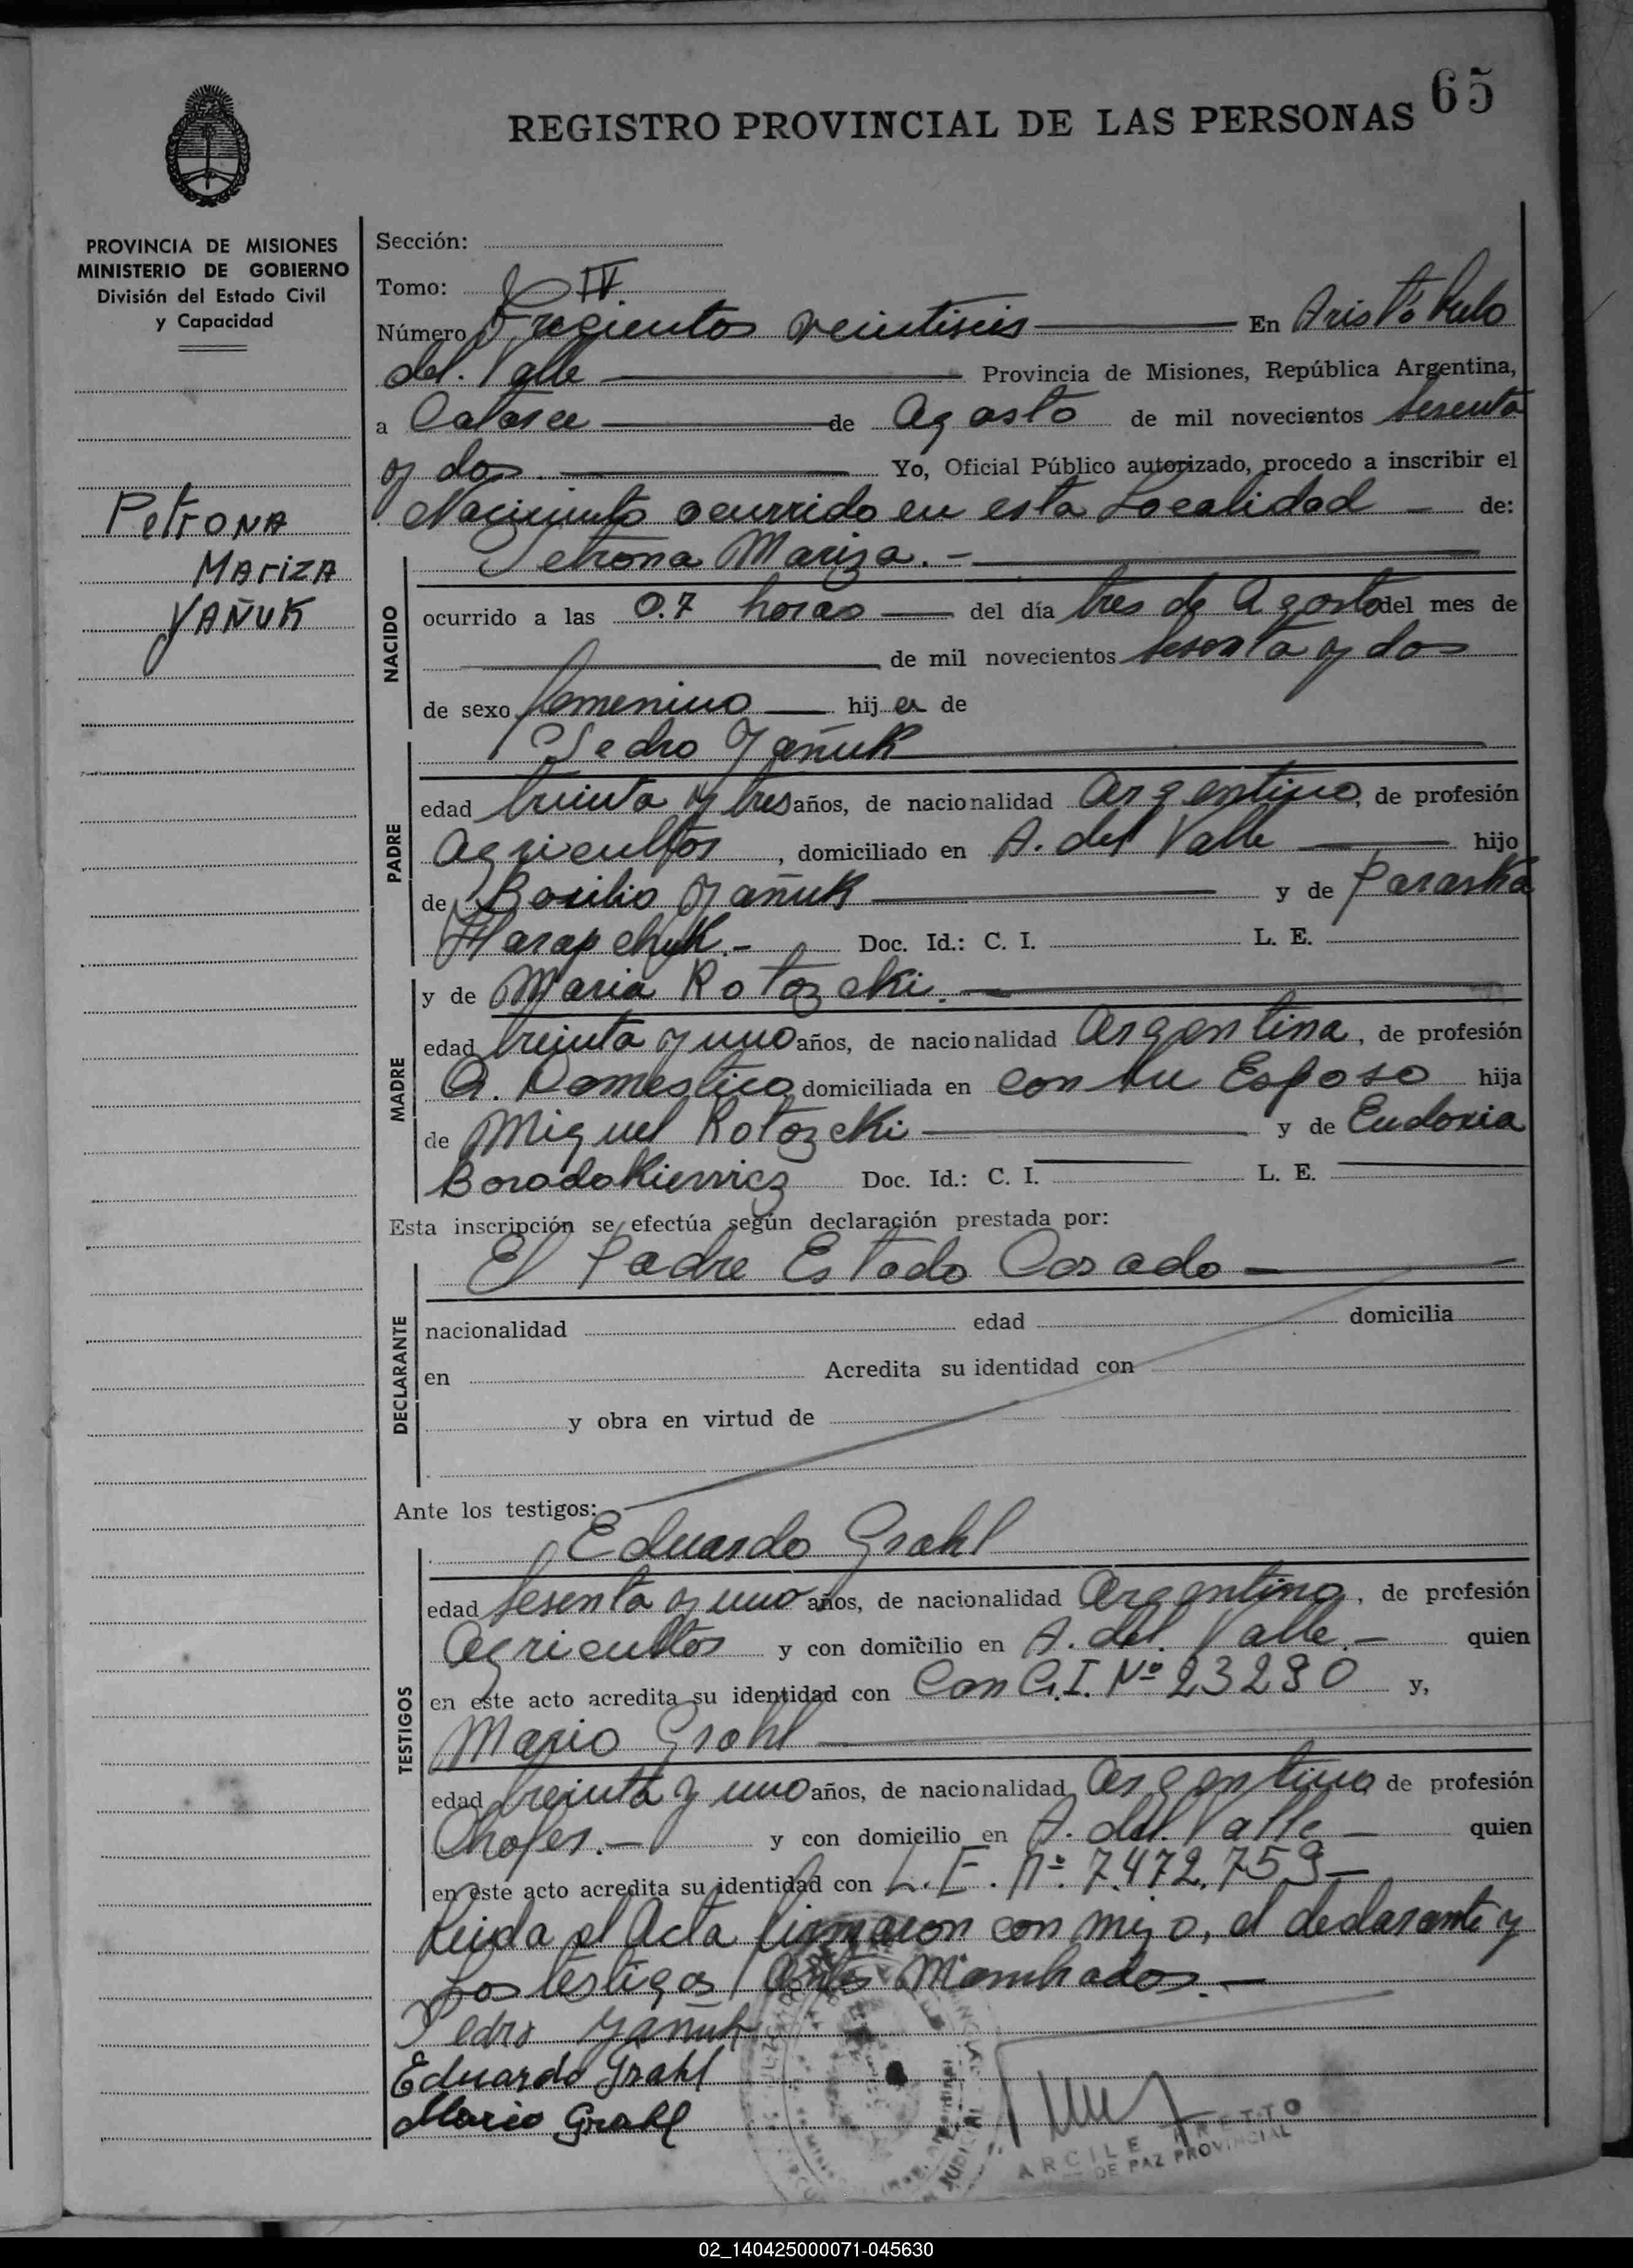 65
REGISTRO PROVINCIAL DE LAS PERSONAS
PROVINCIA DE MISIONES
MINISTERIO DE GOBIERNO
División del Estado Civil
y Capacidad
PETRONA
MARIZA
YAÑUK
Sección:
Tomo: IV.
Número Trecientos veintiseis En Aristóbulo
del Valle Provincia de Misiones, República Argentina,
a Catorce de Agosto de mil novecientos sesenta
y dos Yo, Oficial Público autorizado, procedo a inscribir el
Nacimiento ocurrido en esta Localidad de:
Petrona Mariza.-
NACIDO
ocurrido a las 0.7 horas del día tres de Agosto del mes de
de mil novecientos sesenta y dos
de sexo femenino hija de
Pedro Yañuk
PADRE
edad treinta y tres años, de nacionalidad Argentino, de profesión
Agricultor, domiciliado en A. del Valle hijo
de Basilio Yañuk y de Paraska
Harapchuk.- Doc. Id.: C. I. L. E.
y de Maria Rotozcki.
MADRE
edad treinta y uno años, de nacionalidad Argentina, de profesión
Q. Domestico domiciliada en con su Esposo hija
de Miguel Rotozcki y de Eudoxia
Boradakiewicz Doc. Id.: C. I. L. E.
Esta inscripción se efectúa según declaración prestada por:
El Padre Estado Casado
DECLARANTE
nacionalidad edad domicilia
en Acredita su identidad con
y obra en virtud de
Ante los testigos:
Eduardo Grahl
TESTIGOS
edad sesenta y uno años, de nacionalidad Argentino, de profesión
Agricultor y con domicilio en A. del Valle.- quien
en este acto acredita su identidad con Con C.I. Nº 23280 y,
Mario Grahl
edad treinta y uno años, de nacionalidad Argentino de profesión
Chofer.- y con domicilio en A. del Valle quien
en este acto acredita su identidad con L. E. Nº 7.472.759
Leida el Acta firmaron con migo, el declarante y
Los testigos Antes Mombrados.-
Pedro Yañuk
Eduardo Grahl
Mario Grahl
DE PAZ PROVINCIAL
02_140425000071-045630